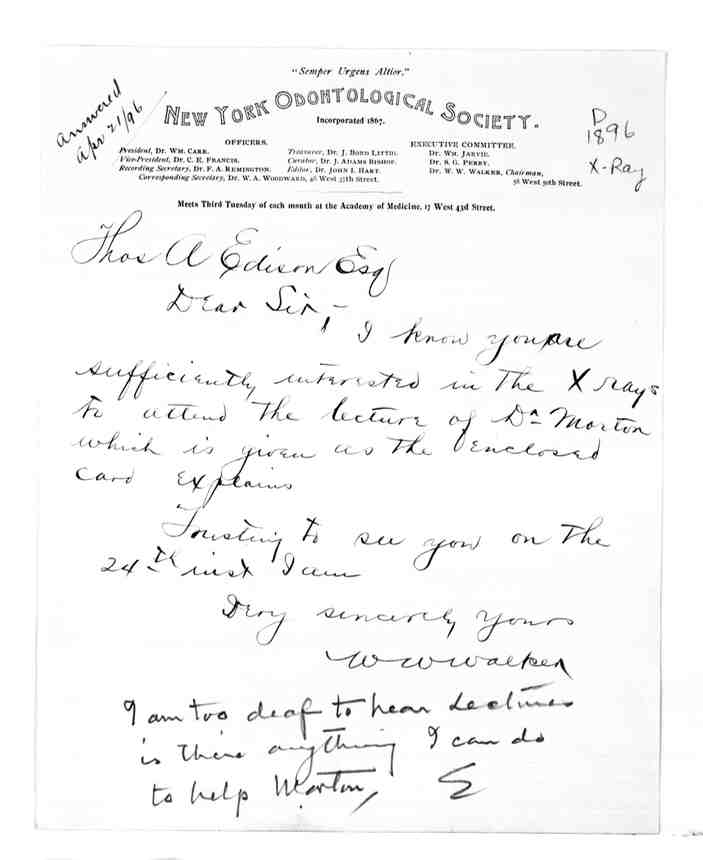 "Semper Urgens Altior."
NEW YORK ODONTOLOGICAL SOCIETY.
Incorporated 1867.
Answered
Apr 21/96
D
1896
X-Ray
OFFICERS.
President, Dr. Wm. Carr.
Vice-President, Dr. C. E. Francis.
Recording Secretary, Dr. F. A. Remington.
Treasurer, Dr. J. Bond Littig.
Curator, Dr. J. Adams Bishop.
Editor, Dr. John I. Hart.
Corresponding Secretary, Dr. W. A. Woodward, 46 West 37th Street.
EXECUTIVE COMMITTEE.
Dr. Wm. Jarvie.
Dr. S. G. Perry.
Dr. W. W. Walker, Chairman,
56 West 50th Street.
Meets Third Tuesday of each month at the Academy of Medicine, 17 West 43d Street.
Thos A Edison Esq
Dear Sir,-
I know you are
sufficiently interested in the X rays
to attend the lecture of Dr Morton
which is given as the enclosed
card explains
Trusting to see you on the
24th inst I am
Very sincerely yours
W W Walker
I am too deaf to hear Lectures
is there anything I can do
to help Morton, E